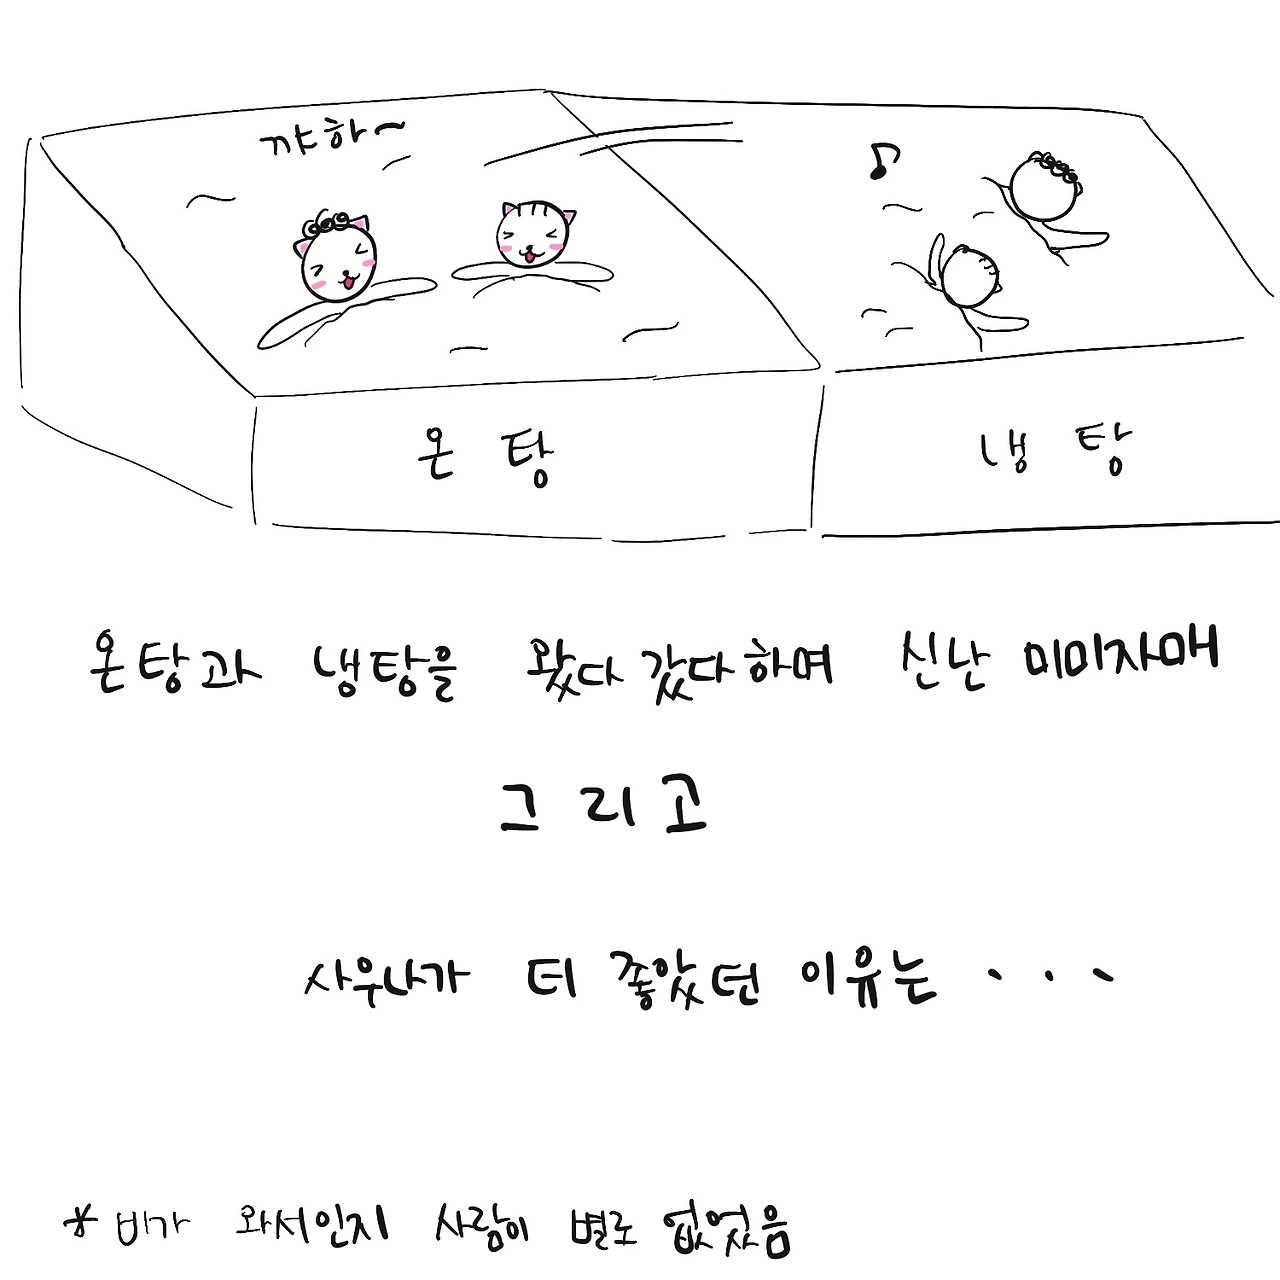 꺄하~
온탕
냉탕
온탕과 냉탕을 왔다 갔다하며 신난 미미자매
그리고
사우나가 더 좋았던 이유는...
* 비가 와서인지 사람이 별로 없었음